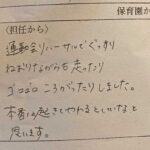 保育園か
(担任から)
運動会リハーサルでぐっすり
ねおりながらも走ったり
ゴロゴロころがったりしました。
本番は起きてやれるといいなと
思います。